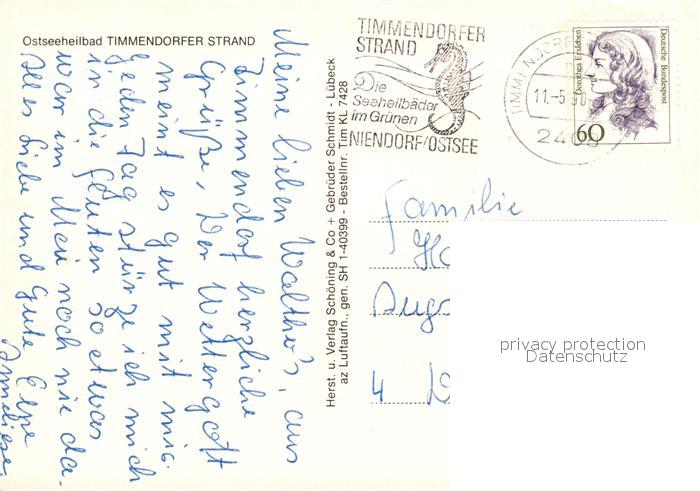 Ostseeheilbad TIMMENDORFER STRAND
Meine lieben Walther's, aus
Timmendorf herzliche
Grüße. Der Wettergott
meint es gut mit mir.
Jeden Tag stürze ich mich
in die Fluten. So etwas
war im Mai noch nie da.
Alles Liebe und Gute
Anneliese
Herst. u. Verlag Schöning & Co + Gebrüder Schmidt - Lübeck
az Luftaufn., gen. SH 1-40399 - Bestellnr. Tim KL 7428
TIMMENDORFER
STRAND
Die
Seeheilbäder
im Grünen
NIENDORF/OSTSEE
11.-5.
240
Dorothea Erxleben
Deutsche Bundespost
60
Familie
4
privacy protection
Datenschutz